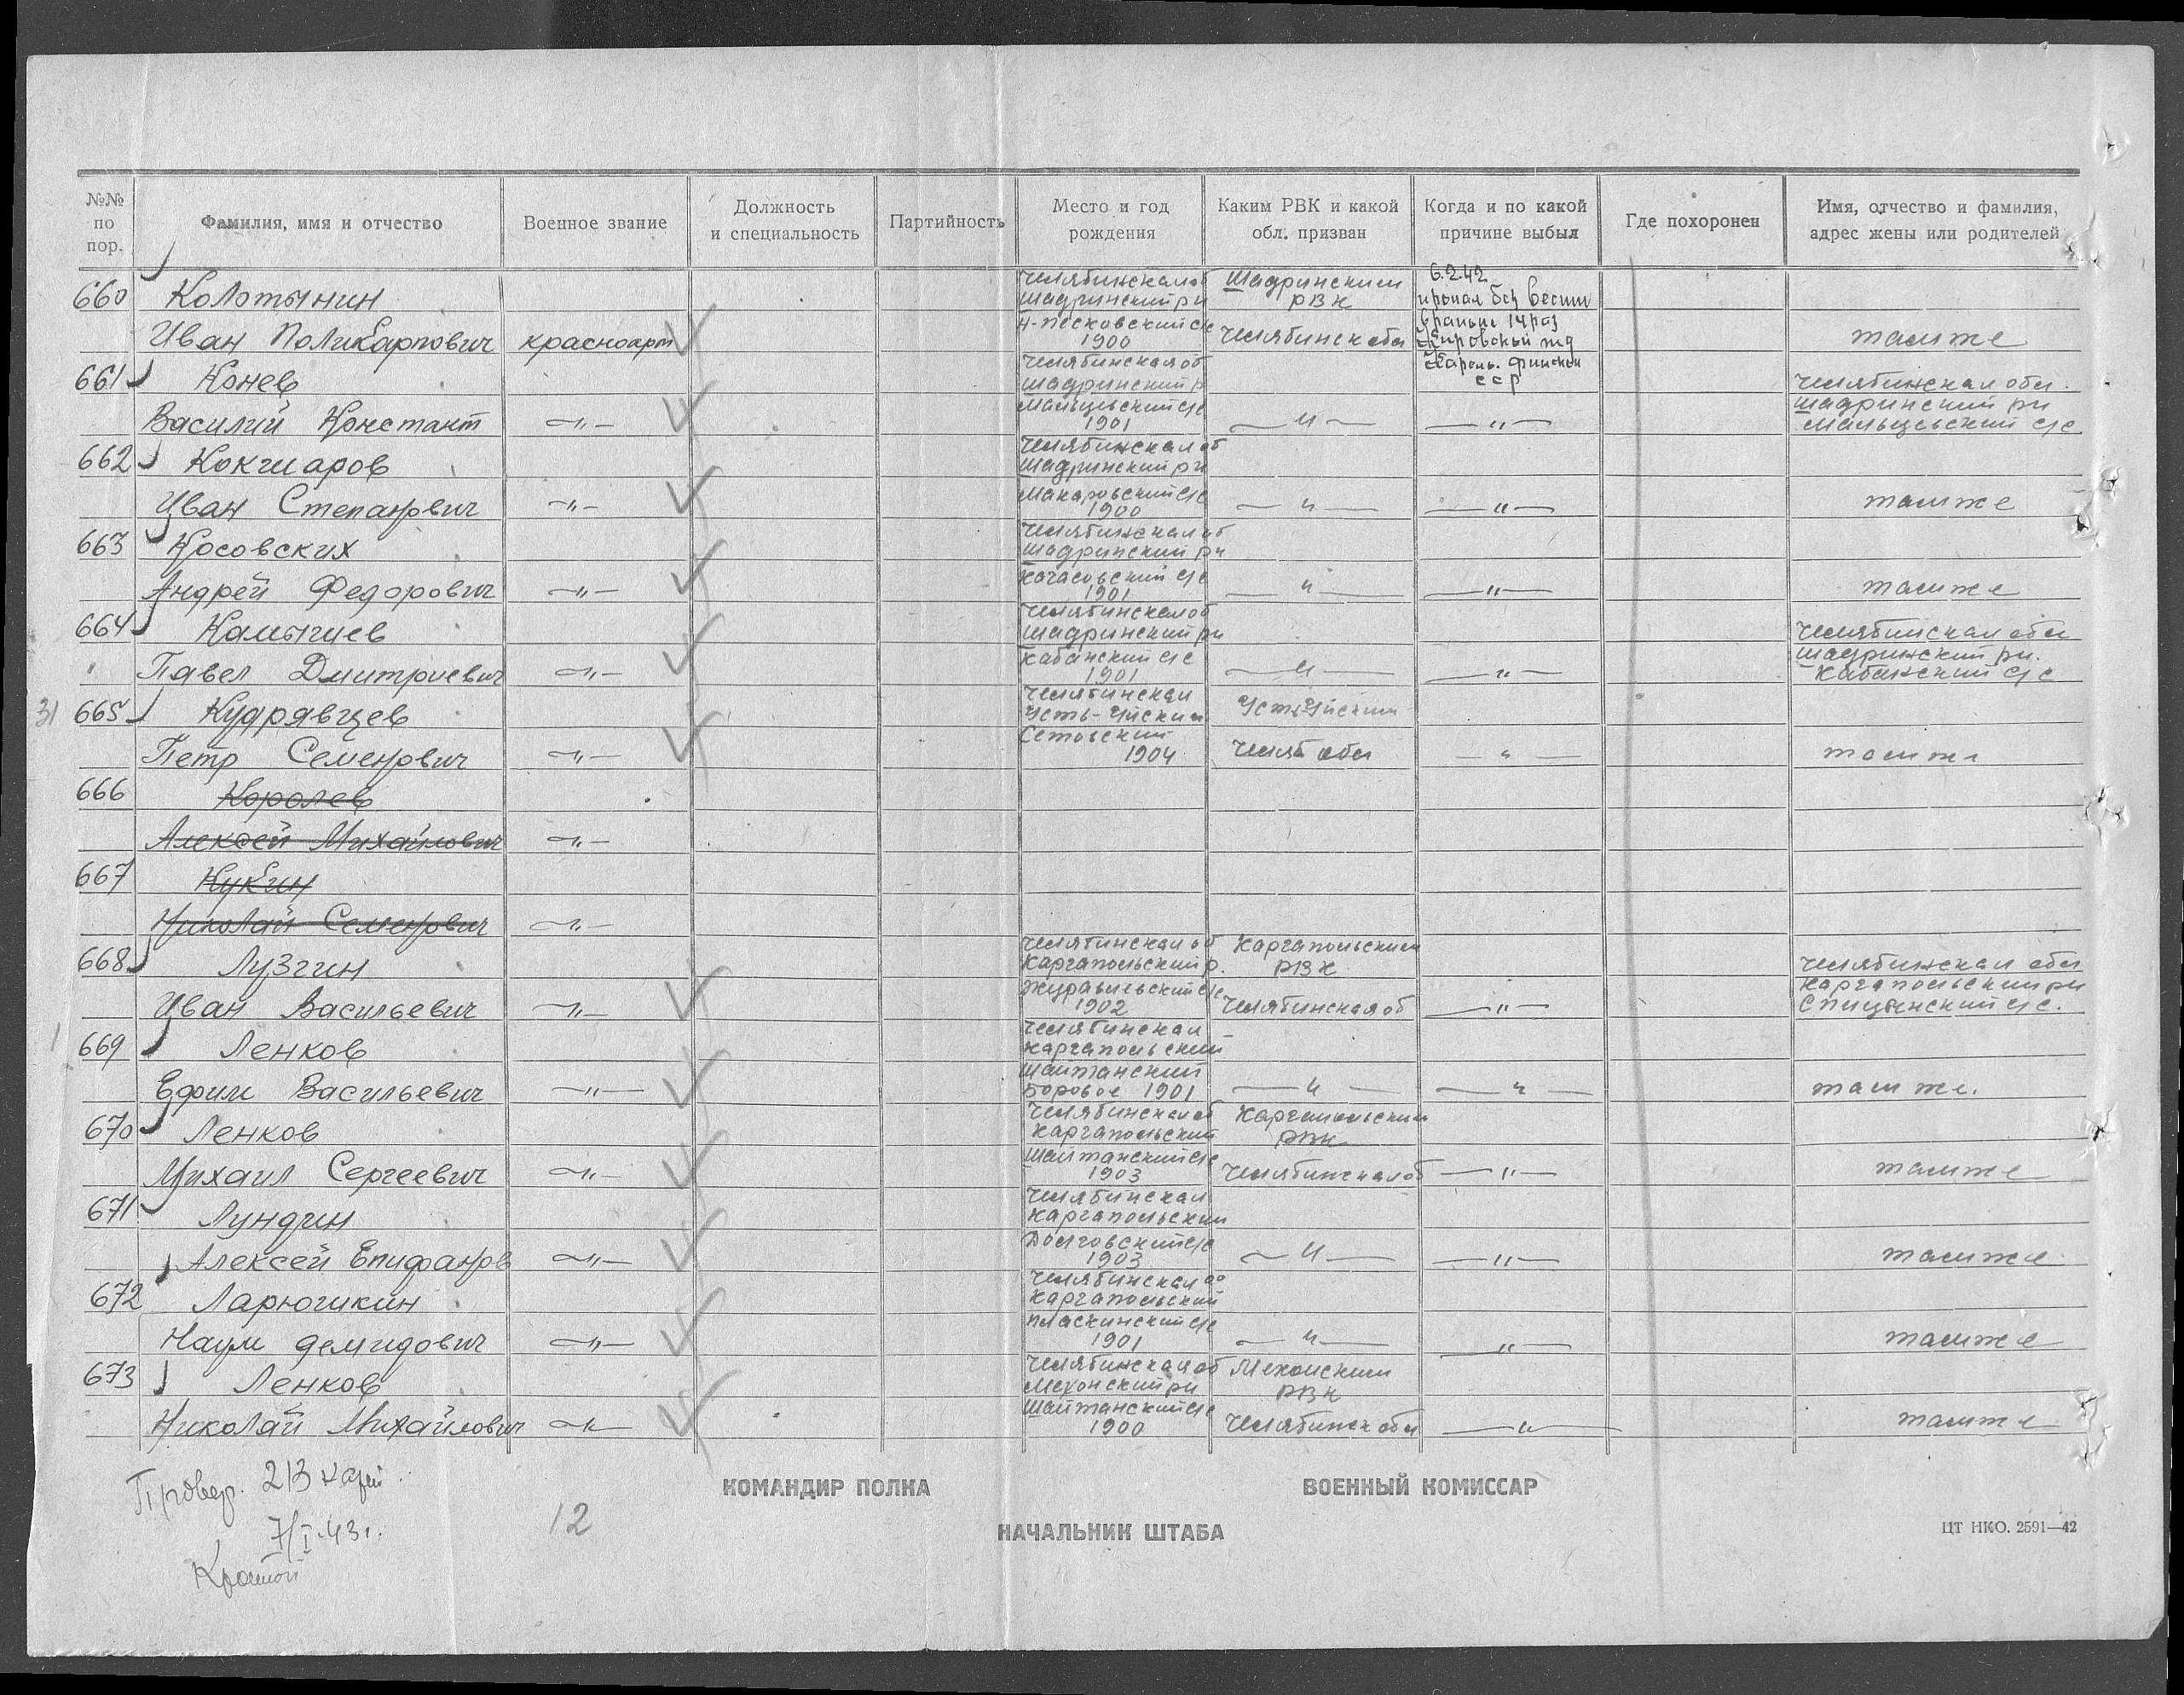 №№ по пор.
Фамилия, имя и отчество
Военное звание
Должность и специальность
Партийность
Место и год рождения
Каким РВК и какой обл. призван
Когда и по какой причине выбыл
Где похоронен
Имя, отчество и фамилия, адрес жены или родителей
660 Колотынин Челябинская об Шадринским 6.2.42
Шадринский рн РВК пропал без вести
Н-Песковский с/с в районе 14 раз
Иван Поликарпович красноарм 1900 Челябинск обл Кировской жд там же
661 Конев Челябинская об Карело. Финской
Шадринский р ССР Челябинская обл.
Мальцевский с/с Шадринский рн
Василий Констант —"— 1901 —"— —"— Мальцевский с/с
662 Кокшаров Челябинская об
Шадринский рн
Макаровский с/с
Иван Степанович —"— 1900 —"— —"— там же
663 Косовских Челябинская об
Шадринский рн
с/с
Андрей Федорович —"— 1901 —"— —"— там же
664 Камышев Челябинская об
Шадринский рн Челябинская обл
Кабанский с/с Шадринский рн.
Павел Дмитриевич —"— 1901 —"— —"— Кабанский с/с
31 665 Кудрявцев Челябинская
Усть-Уйский Усть-Уйским
Сетовский
Петр Семенович —"— 1904 Челяб обл —"— там же
666 Королев
Алексей Михайлович —"—
667 Кукин
Николай Семенович —"—
668 Лузгин Челябинская об Каргапольским
Каргапольский р. РВК Челябинская обл
Журавлевский с/с Каргапольский рн
Иван Васильевич —"— 1902 Челябинская об —"— Спицынский с/с.
1 669 Ленков Челябинская
Каргапольский
Шайтанский
Ефим Васильевич —"— Боровое 1901 —"— —"— там же.
670 Ленков Челябинская об Каргапольским
Каргапольский РВК
Шайтанский с/с
Михаил Сергеевич —"— 1903 Челябинская об —"— там же
671 Лундин Челябинская
Каргапольский
Долговский с/с
Алексей Епифанов —"— 1903 —"— —"— там же
672 Ларюшкин Челябинская об
Каргапольский
Пласкинский с/с
Наум Демидович —"— 1901 —"— —"— там же
673 Ленков Челябинская об Мехонским
Мехонский рн РВК
Шайтанский с/с
Николай Михайлович —"— 1900 Челябинск обл —"— там же
Провер. 213
7/I.43г.
12
КОМАНДИР ПОЛКА
ВОЕННЫЙ КОМИССАР
НАЧАЛЬНИК ШТАБА
ЦТ НКО. 2591—42